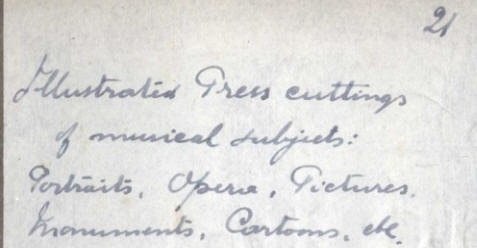 21
Illustrated Press cuttings
of musical subjects:
Portraits, Opera, Pictures,
Monuments, Cartoons, etc.